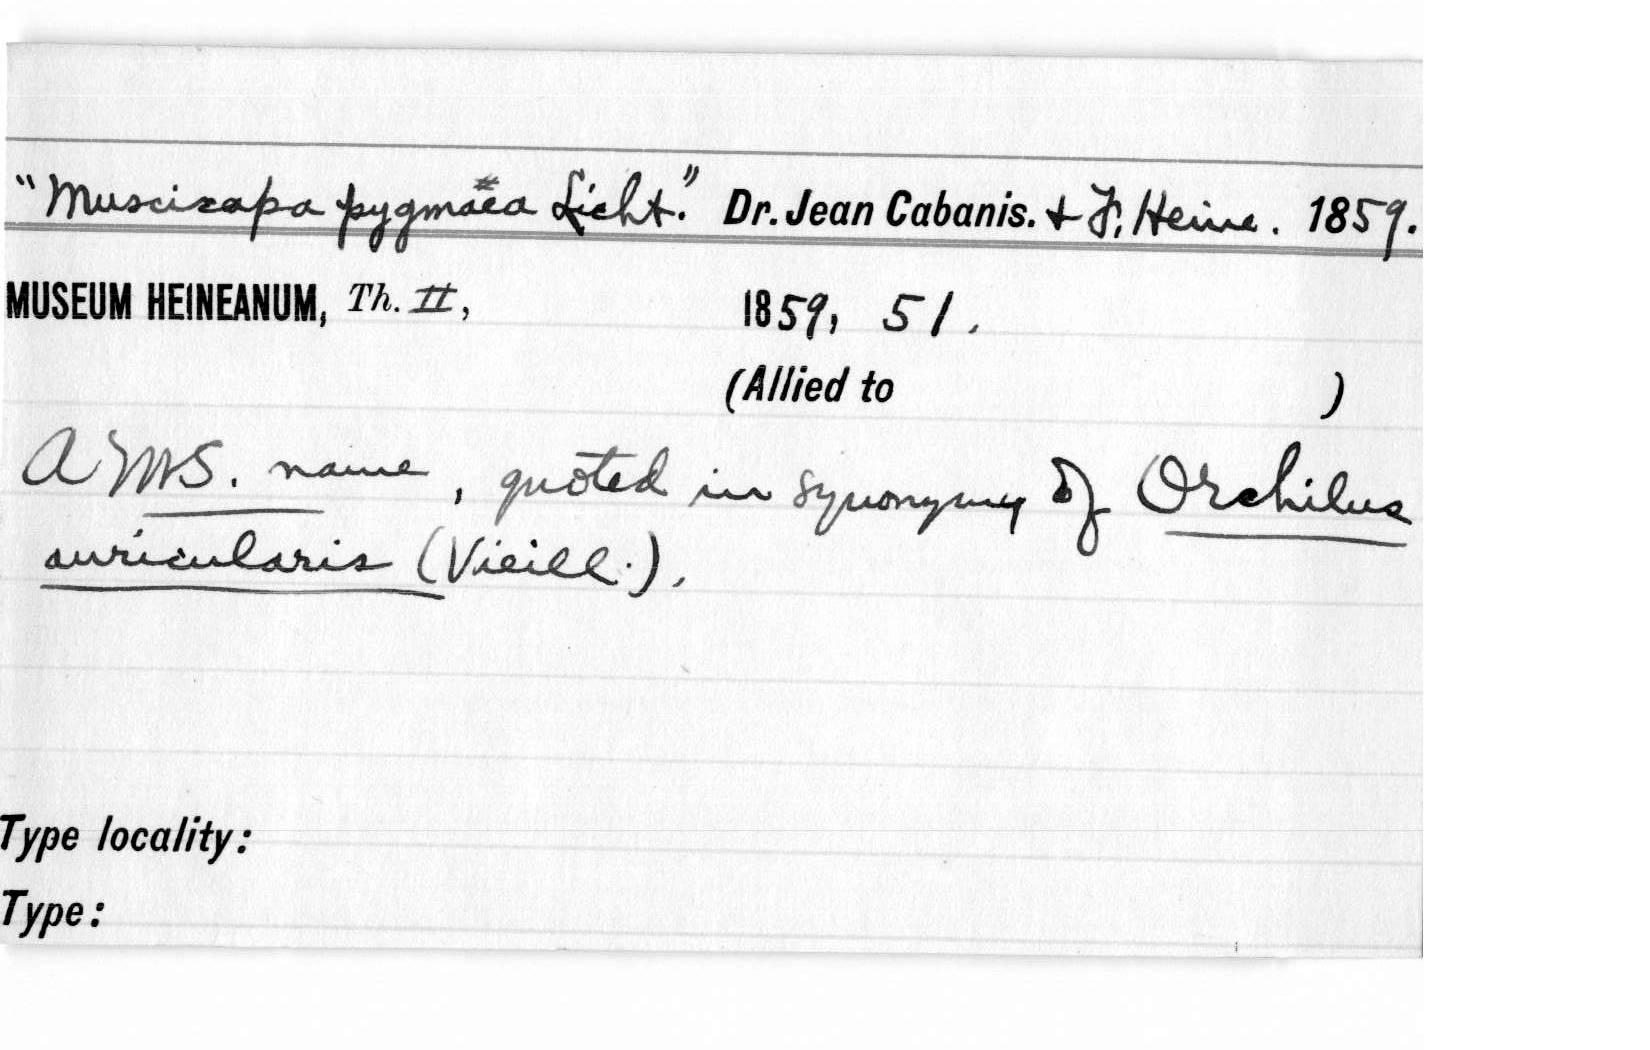 "Muscicapa pygmaea Licht." Dr. Jean Cabanis. + F. Heine. 1859.
MUSEUM HEINEANUM, Th. II, 1859, 51.
(Allied to )
A MS. name, quoted in synonymy of Orchilus
auricularis (Vieill.).
Type locality:
Type: